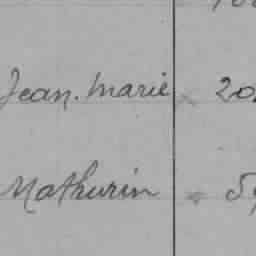 Jean. Marie 20
Mathurin 59